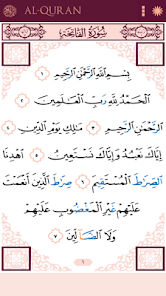 AL-QURAN
سُورَةُ الفَاتِحَة
بِسْمِ اللَّهِ الرَّحْمَٰنِ الرَّحِيمِ ١
الْحَمْدُ لِلَّهِ رَبِّ الْعَالَمِينَ ٢
الرَّحْمَٰنِ الرَّحِيمِ ٣ مَالِكِ يَوْمِ الدِّينِ ٤
إِيَّاكَ نَعْبُدُ وَإِيَّاكَ نَسْتَعِينُ ٥ اهْدِنَا
الصِّرَاطَ الْمُسْتَقِيمَ ٦ صِرَاطَ الَّذِينَ أَنْعَمْتَ
عَلَيْهِمْ غَيْرِ الْمَغْضُوبِ عَلَيْهِمْ
وَلَا الضَّالِّينَ ٧
١